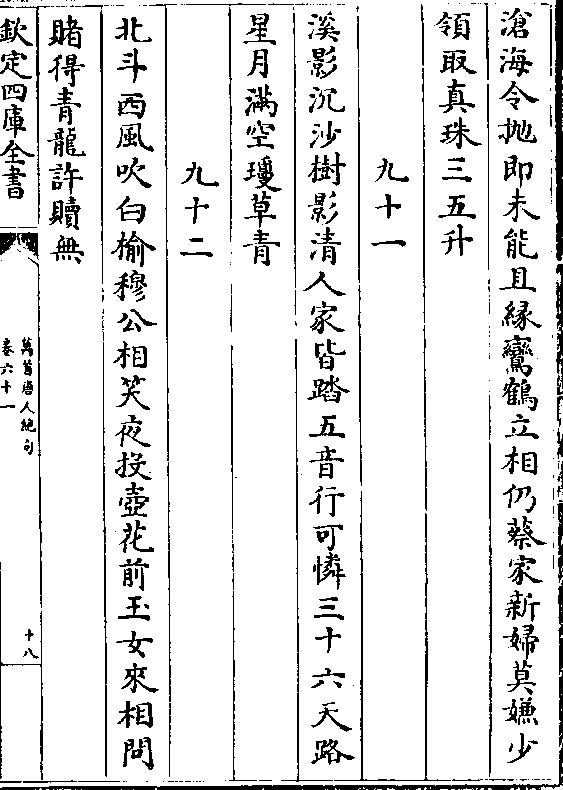 滄海令抛即未能且縁鸞鶴立相仍蔡家新婦莫嫌少
領取真珠三五升
九十一
溪影沉沙樹影清人家皆踏五音行可憐三十六天路
星月滿空瓊草青
九十二
北斗西風吹白榆穆公相笑夜投壺花前玉女來相問
賭得青龍許贖無
欽定四庫全書
萬首唐人絶句
卷六十一
十八